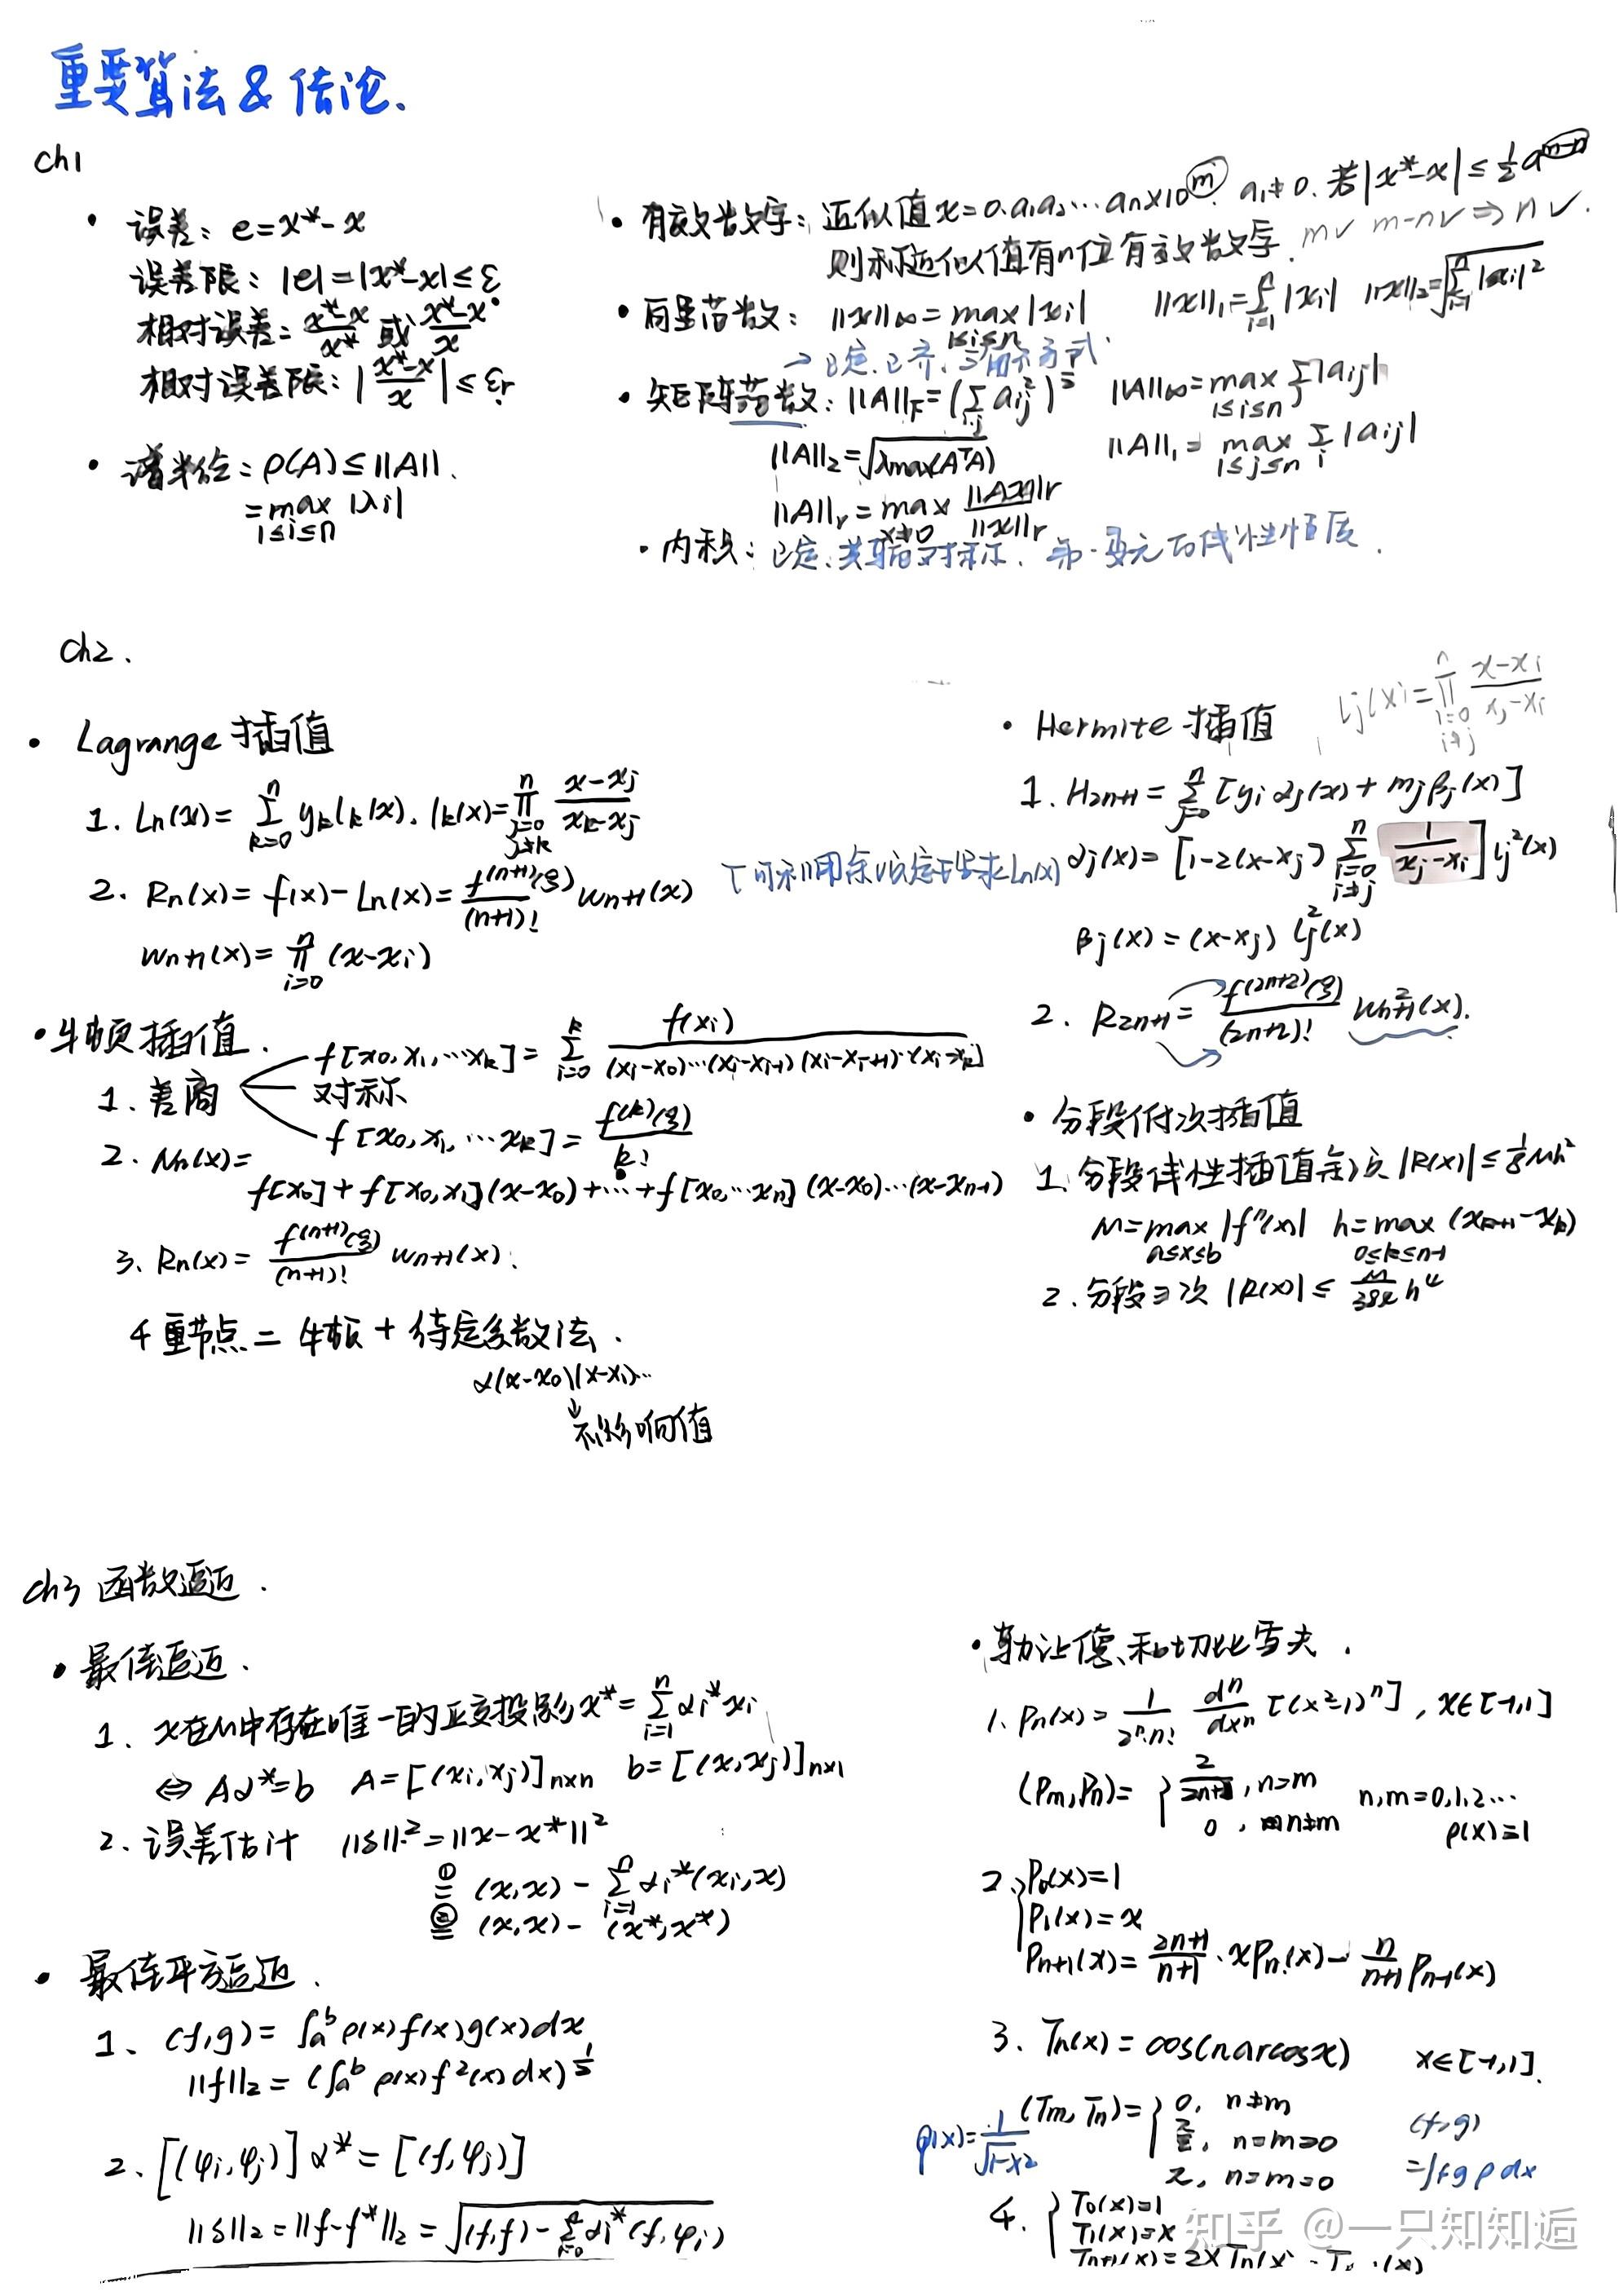 重要算法 & 结论.
ch1
· 误差: e=x*-x
误差限: |e|=|x*-x|≤ε
相对误差= (x*-x)/x* 或 (x*-x)/x
相对误差限: |(x*-x)/x|≤εr
· 谱半径: ρ(A)≤||A||.
=max_{1≤i≤n} |λi|
· 有效数字: 近似值 x=0.a1a2…an×10^m. a1≠0. 若|x*-x|≤½a^{m-n}
则称近似值有n位有效数字. m✓ m-n✓ ⇒ n✓.
· 向量范数: ||x||∞=max_{1≤i≤n}|xi| ||x||1=Σ_{i=1}^n|xi| ||x||2=√(Σ_{i=1}^n|xi|²)
→ 正定.正齐.三角不等式.
· 矩阵范数: ||A||F=(Σ_{i,j} aij²)^{1/2} ||A||∞=max_{1≤i≤n} Σ_j|aij|
||A||2=√(λmax(AᵀA)) ||A||1=max_{1≤j≤n} Σ_i |aij|
||A||r=max_{x≠0} ||Ax||r/||x||r
· 内积: 正定.共轭对称. 第一变元的线性性质.
ch2.
· Lagrange 插值
1. Ln(x)= Σ_{k=0}^n yk lk(x). lk(x)=∏_{j=0, j≠k}^n (x-xj)/(xk-xj)
2. Rn(x)=f(x)-Ln(x)= f^{(n+1)}(ξ)/(n+1)! wn+1(x)
wn+1(x)=∏_{i=0}^n (x-xi)
· 牛顿插值.
1. 差商
f[x0,x1,…xk]= Σ_{i=0}^k f(xi)/((xi-x0)…(xi-xi-1)(xi-xi+1)…(xi-xk))
对称
f[x0,x1,…xk]= f^{(k)}(ξ)/k!
2. Nn(x)=
f[x0]+f[x0,x1](x-x0)+…+f[x0,…xn](x-x0)…(x-xn-1)
3. Rn(x)= f^{(n+1)}(ξ)/(n+1)! wn+1(x).
4 重节点 = 牛顿 + 待定系数法.
α(x-x0)(x-x1)…
↓
不影响值
· Hermite 插值 lj(x)=∏_{i=0, i≠j}^n (x-xi)/(xj-xi)
1. H2n+1= Σ_{j=0}^n [yi αj(x)+mjβj(x)]
αj(x)=[1-2(x-xj) Σ_{i=0, i≠j}^n 1/(xj-xi)] lj²(x)
βj(x)=(x-xj) lj²(x)
2. R2n+1= f^{(2n+2)}(ξ)/(2n+2)! wn+1²(x).
· 分段低次插值
1. 分段线性插值余项 |R(x)|≤⅛Mh²
M=max_{a≤x≤b}|f''(x)| h=max_{0≤k≤n-1}(xk+1-xk)
2. 分段三次 |R(x)|≤ M/384 h⁴
ch3 函数逼近.
· 最佳逼近.
1. x在M中存在唯一的正交投影 x*= Σ_{i=1}^n αi* xi
⇔ Aα*=b A=[(xi,xj)]n×n b=[(x,xj)]n×1
2. 误差估计 ||δ||²=||x-x*||²
①= (x,x)- Σ_{i=1}^n αi*(xi,x)
②= (x,x)-(x*,x*)
· 最佳平方逼近.
1. (f,g)=∫_a^b ρ(x)f(x)g(x)dx
||f||2=(∫_a^b ρ(x)f²(x)dx)^{1/2}
2. [(φi,φj)]α*=[(f,φj)]
||δ||2=||f-f*||2=√((f,f)-Σ_{i=0}^n αi*(f,φi))
· 勒让德和切比雪夫.
1. Pn(x)= 1/(2^n·n!) d^n/dx^n [(x²-1)^n], x∈[-1,1]
(Pm,Pn)={ 2/(2n+1), n=m
0, n≠m
n,m=0,1,2…
ρ(x)=1
2. { P0(x)=1
P1(x)=x
Pn+1(x)= (2n+1)/(n+1)·xPn(x)- n/(n+1) Pn-1(x)
3. Tn(x)=cos(narccosx) x∈[-1,1].
ρ(x)=1/√(1-x²) (Tm,Tn)={ 0, n≠m
π/2, n=m≠0
π, n=m=0
(f,g)
=∫fgρdx
4. { T0(x)=1
T1(x)=x
Tn+1(x)=2xTn(x)-
知乎 @一只知知逅